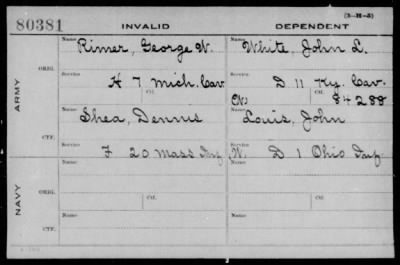 (3-H-5)
80381 INVALID DEPENDENT
Name Rimer, George W. Name White, John L.
ORIG. Service H 7 Mich. Cav. Service D 11 Ky. Cav.
Ctf. Ctf. 84288
ARMY
Name Shea, Dennis Name Louis, John
CTF. Service F 20 Mass Inf. Service D 1 Ohio Inf
Name Name
ORIG. Service Ctf. Service Ctf.
NAVY
Name Name
CTF. Service Service